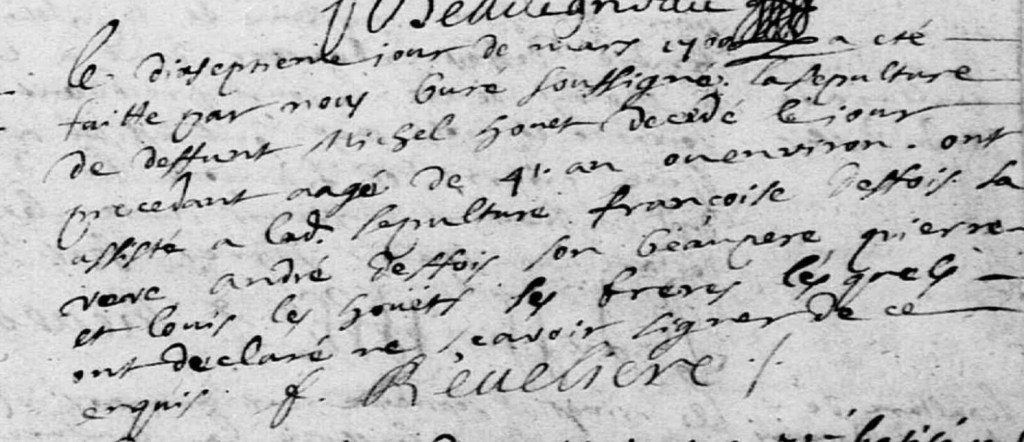 le dixseptieme jour de mars 1700 a eté
faitte par nous Curé soussigné la sepulture
de deffunt Michel houet decedé le jour
precedant aagé de 41 an ou environ . ont
assisté a lad. sepulture françoise deffois sa
veuve andré deffois son beaupere pierre
et louis les houets ses freres lesquels
ont declaré ne scavoir signer de ce
enquis f. Reveliere